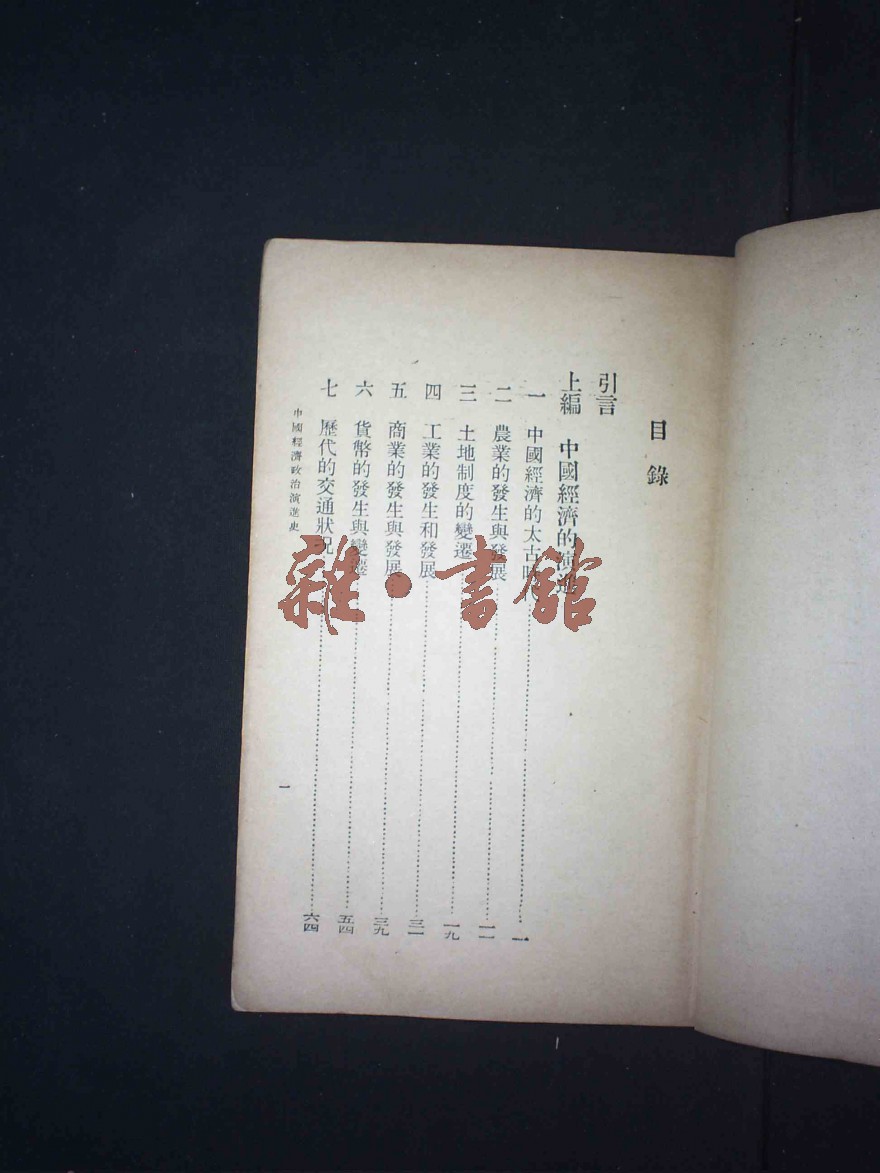 目錄
引言
上編 中國經濟的演進
一 中國經濟的太古時代……一
二 農業的發生與發展……一一
三 土地制度的變遷……一九
四 工業的發生和發展……三一
五 商業的發生與發展……三九
六 貨幣的發生與變遷……五四
七 歷代的交通狀況……六四
中國經濟政治演進史
一
雜·書館